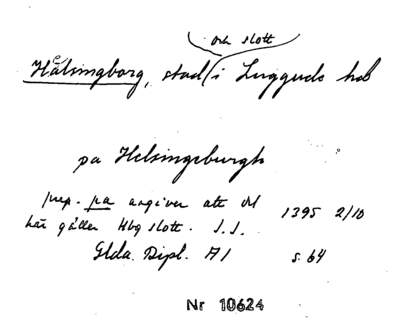 och slott
Hälsingborg, stad i Luggude hd
pa Helsingeburgh
prep. pa angiver att det 1395 2/10
här gäller Hbg slott. J.J.
Glda. Dipl. A1 s. 64
Nr 10624